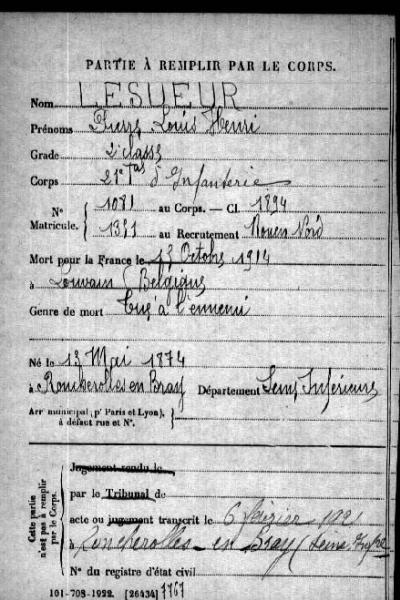 PARTIE À REMPLIR PAR LE CORPS.
Nom LESUEUR
Prénoms Pierre Louis Henri
Grade 2e classe
Corps 21e Tal d'Infanterie
N° 1081 au Corps. — Cl. 1894
Matricule. 1351 au Recrutement Rouen Nord
Mort pour la France le 13 Octobre 1914
à Louvain (Belgique
Genre de mort Tué à l'ennemi
Né le 13 Mai 1874
à Roncherolles en Bray Département Seine Inférieure
Arr' municipal (p' Paris et Lyon),
à défaut rue et N°.
Cette partie
n'est pas à remplir
par le Corps.
Jugement rendu le
par le Tribunal de
acte ou jugement transcrit le 6 février 1921
à Roncherolles-en Bray (Seine Infre
N° du registre d'état civil
101-708-1922. [26434] 7767